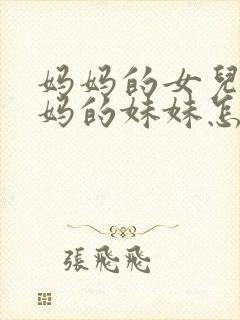 妈妈的女兒
妈的妹妹怎
張飛飛